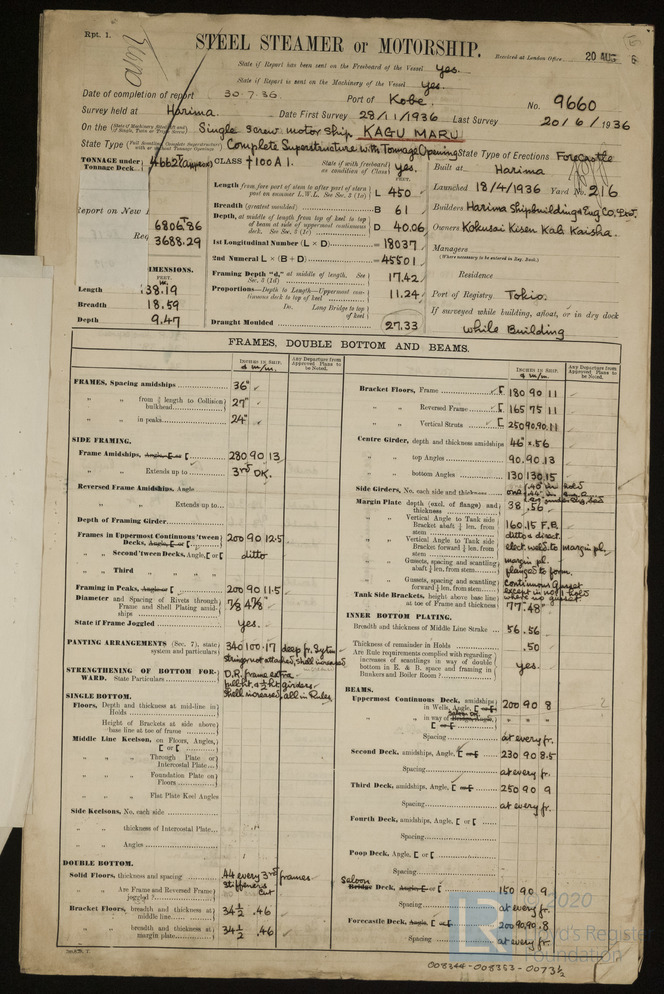 Rpt. 1.
STEEL STEAMER or MOTORSHIP.
Received at London Office 20 AUG
State if Report has been sent on the Freeboard of the Vessel yes.
State if Report is sent on the Machinery of the Vessel yes.
Date of completion of report 30.7.36 Port of Kobe. No. 9660
Survey held at Harima. Date First Survey 28/1/1936 Last Survey 20/6/1936
On the Single screw motor ship KAGU MARU
State Type Complete Superstructure with Tonnage Opening State Type of Erections Forecastle
TONNAGE under Tonnage Deck 4662 (approx) CLASS +100A1. State if with freeboard as condition of Class yes.
Built at Harima
Launched 18/4/1936 Yard No. 216
Builders Harima Shipbuilding & Eng Co. Ltd.
Owners Kokusai Kisen Kab. Kaisha.
Managers
(Where necessary to be entered in Reg. Book.)
Residence
Port of Registry Tokio.
If surveyed while building, afloat, or in dry dock
while Building
Report on New
6806.86
3688.29
DIMENSIONS.
Length 138.19
Breadth 18.59
Depth 9.47
Length from fore part of stem to after part of stern post on summer L.W.L. See Sec. 3 (1a) L 450
Breadth (greatest moulded) B 61
Depth, at middle of length from top of keel to top of beam at side of uppermost continuous deck. See Sec. 3 (1c) D 40.06
1st Longitudinal Number (L × D) = 18037
2nd Numeral L × (B + D) = 45501
Framing Depth "d," at middle of length. See Sec. 3 (1d) 17.42
Proportions—Depth to Length—Uppermost continuous deck to top of keel 11.24
Do. Long Bridge to top of keel
Draught Moulded 27.33
FRAMES, DOUBLE BOTTOM AND BEAMS.
INCHES IN SHIP. & m/m. Any Departure from Approved Plans to be Noted.
FRAMES, Spacing amidships 36"
" " from ⅕ length to Collision bulkhead 27"
" " in peaks 24"
SIDE FRAMING.
Frame Amidships, Angle [ or [ 280 90 13
" " Extends up to 3rd DK.
Reversed Frame Amidships, Angle
" " Extends up to
Depth of Framing Girder
Frames in Uppermost Continuous 'tween Decks, Angle [ or [ 200 90 12.5
" " Second 'tween Decks, Angle, [ or [ ditto
" " Third " "
Framing in Peaks, Angle or [ 200 90 11.5
Diameter and Spacing of Rivets through Frame and Shell Plating amidships 7/8 4 7/8
State if Frame Joggled yes.
PANTING ARRANGEMENTS (Sec. 7), state system and particulars 340 100 17 deep fr. System
Stringer not attached, shell increased
STRENGTHENING OF BOTTOM FORWARD. State Particulars D.R. frame extra
full ht. & ½ ht. girders.
Shell increased, all in Rules
SINGLE BOTTOM.
Floors, Depth and thickness at mid-line in Holds
Height of Brackets at side above base line at toe of frames
Middle Line Keelson, on Floors, Angles, [ or [
" " Through Plate or Intercostal Plate
" " Foundation Plate on Floors
" " Flat Plate Keel Angles
Side Keelsons, No. each side
" " thickness of Intercostal Plate
" " Angles
DOUBLE BOTTOM.
Solid Floors, thickness and spacing .44 every 3rd frames
" " Are Frame and Reversed Frame joggled? stiffeners cut
Bracket Floors, breadth and thickness at middle line 34½ .46
" " breadth and thickness at margin plate 34½ .46
INCHES IN SHIP. & m/m. Any Departure from Approved Plans to be Noted.
Bracket Floors, Frame [ 180 90 11
" " Reversed Frame [ 165 75 11
" " Vertical Struts [ 250 90.90.11
Centre Girder, depth and thickness amidships 46 × .56
" " top Angles 90.90 13
" " bottom Angles 130 130.15
Side Girders, No. each side and thickness one .40 in hold
Margin Plate depth (excl. of flange) and thickness 38 .56
" " Vertical Angle to Tank side Bracket abaft ¼ len. from stem 160.15 F.B.
" " Vertical Angle to Tank side Bracket forward ¼ len. from stem ditto & direct
elect. weld. to margin pl.
" " Gussets, spacing and scantling abaft ¼ len. from stem margin pl.
flanged to form.
" " Gussets, spacing and scantling forward ¼ len. from stem continuous Gusset
except in no. 1 hold
where no gusset.
Tank Side Brackets, height above base line at toe of Frame and thickness 77 .48"
INNER BOTTOM PLATING.
Breadth and thickness of Middle Line Strake 56 .56
Thickness of remainder in Holds .50
Are Rule requirements complied with regarding increases of scantlings in way of double bottom in E. & B. space and framing in Bunkers and Boiler Room? yes.
BEAMS.
Uppermost Continuous Deck, amidships in Wells, Angle, [ or [ 200 90 8
" " in way of Bridge, Angle, [ or [ " " "
Spacing at every fr.
Second Deck, amidships, Angle, [ or [ 230 90 8.5
Spacing at every fr.
Third Deck, amidships, Angle, [ or [ 250 90 9
Spacing at every fr.
Fourth Deck, amidships, Angle, [ or [
Spacing
Poop Deck, Angle, [ or [
Spacing
Saloon
Bridge Deck, Angle, [ or [ 150 90 9
Spacing at every fr.
Forecastle Deck, Angle, [ or [ 200 90.90.8
Spacing at every fr.
© 2020
Lloyd's Register
Foundation
008344-008353-0073½